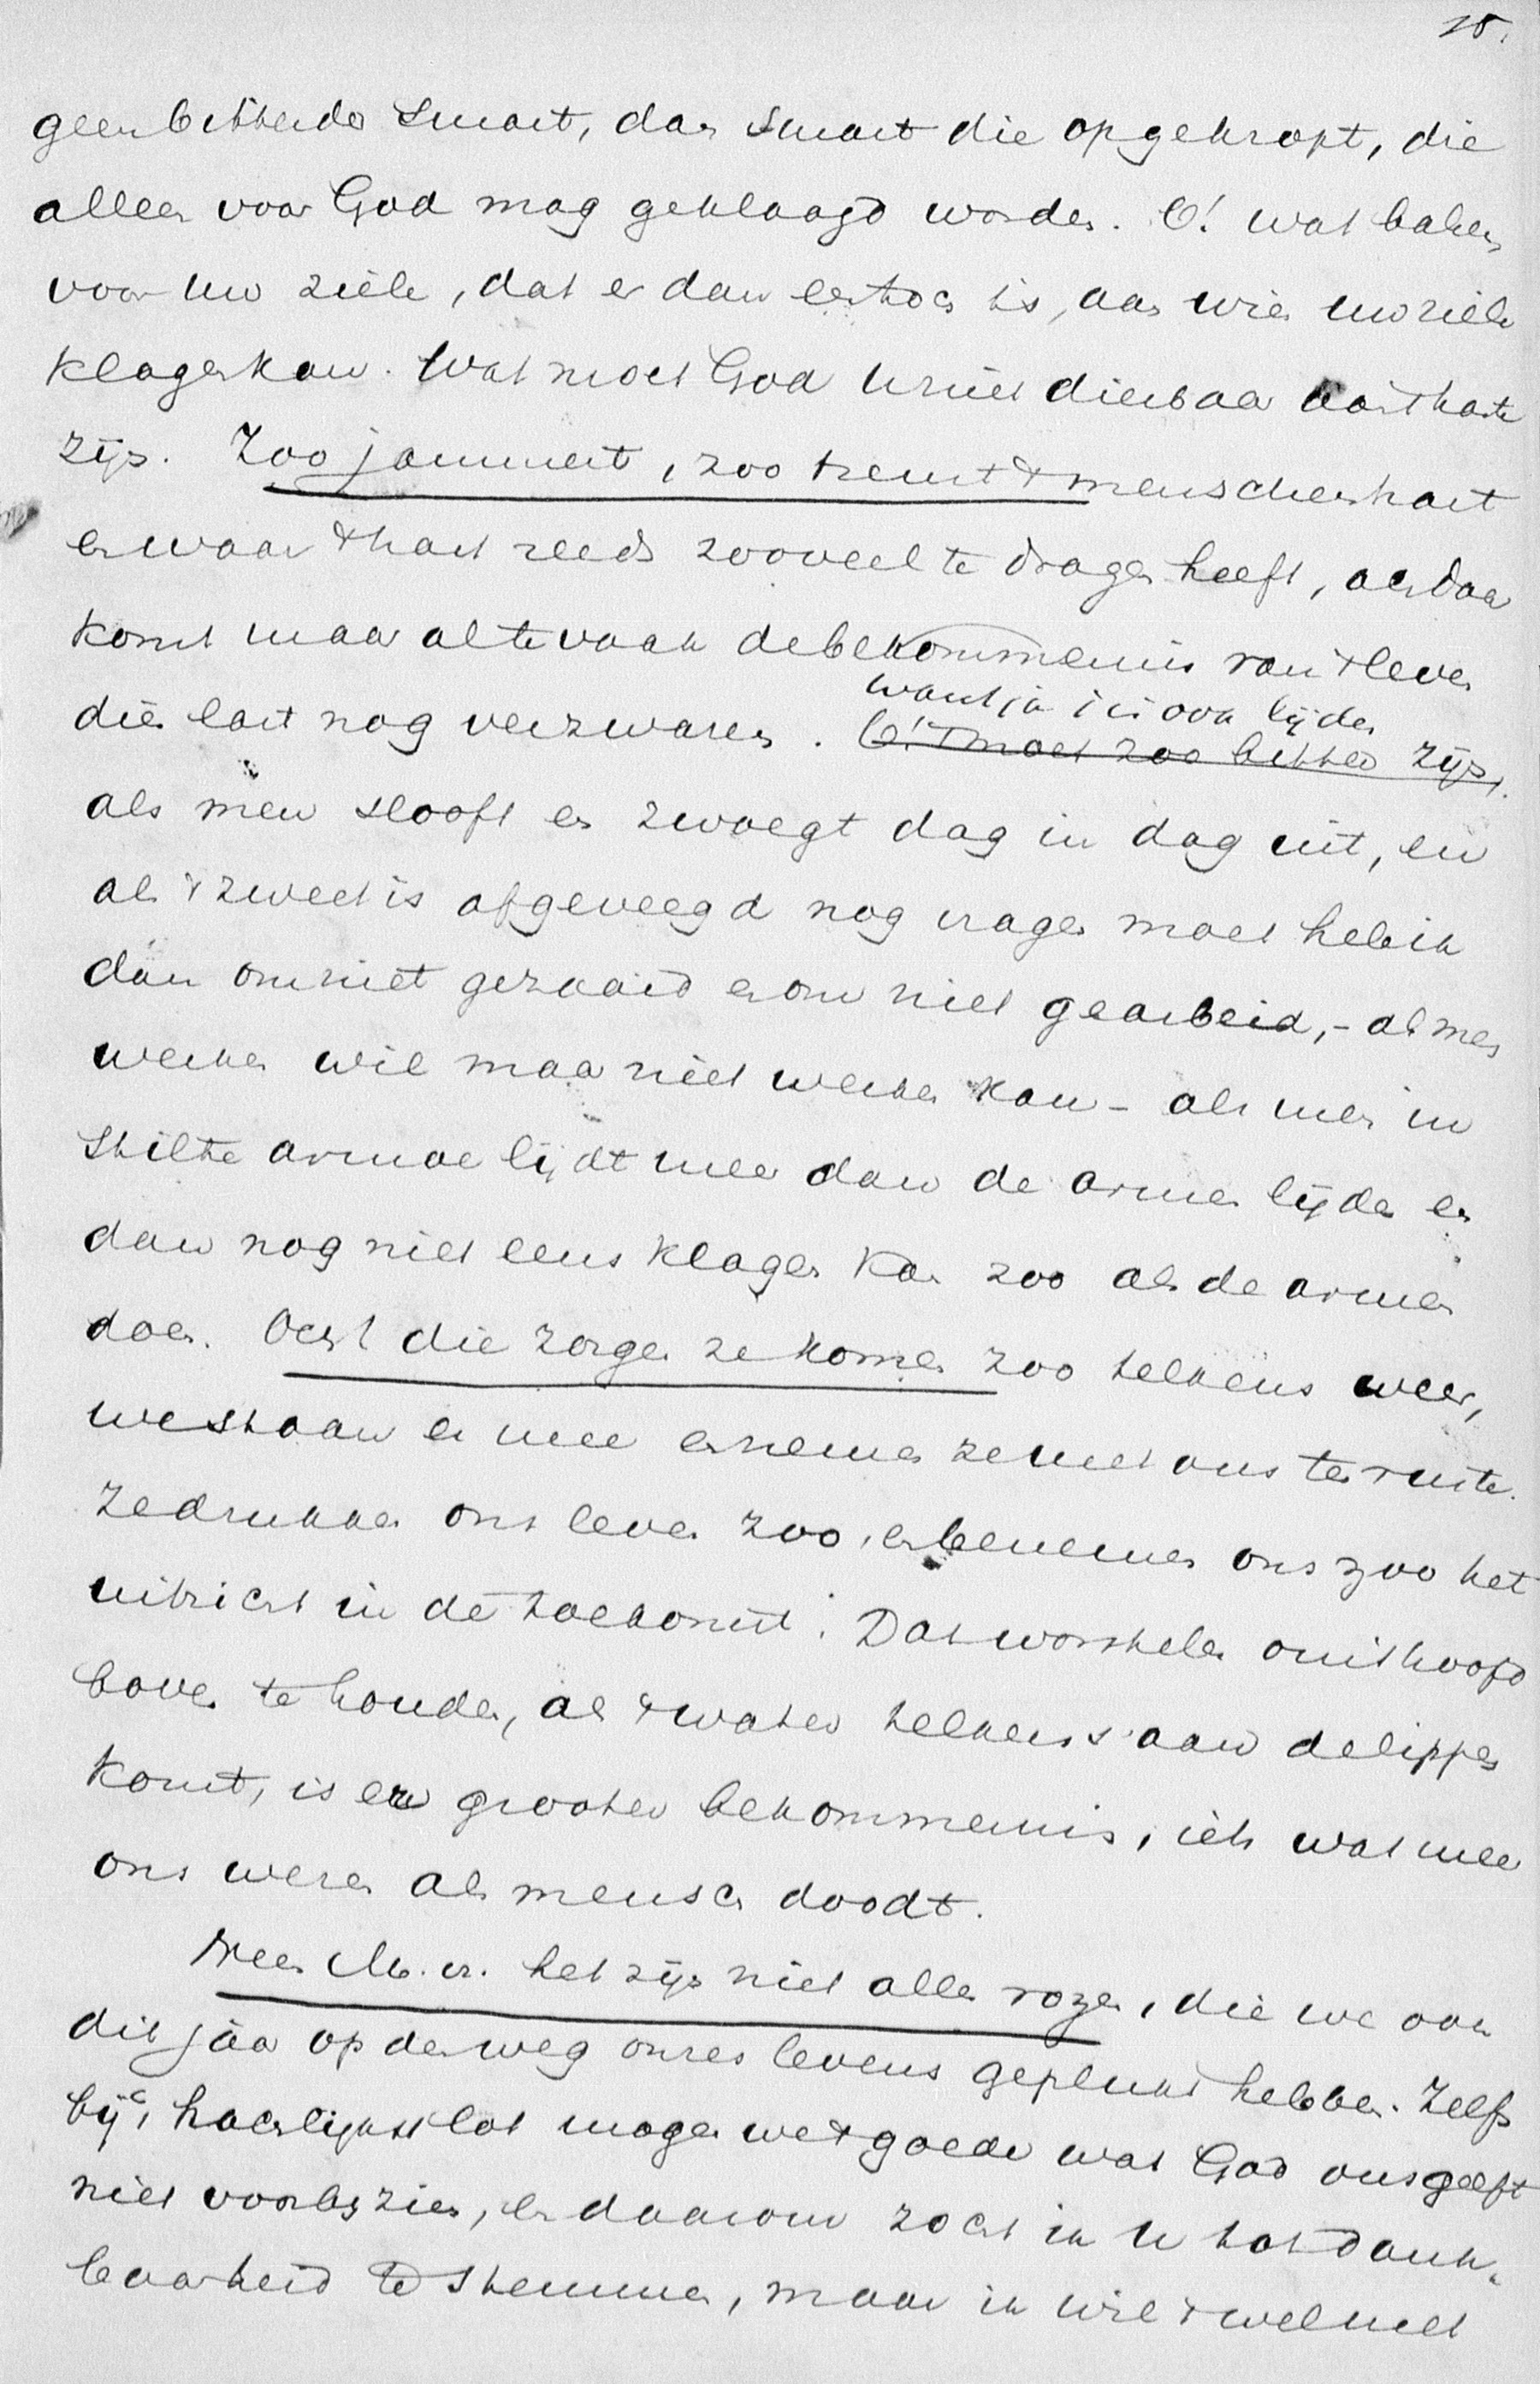 25.
geen bitterder smart, dan smart die opgekropt, die
alleen voor God mag geklaagd worden. O! wat balsem
voor uw ziele, dat er dan een toch is, aan wien uw ziele
klagen kan. Wat moet God u niet dierbaar aan 't harte
zijn. Zoo jammert, zoo treurt 't menschenhart
en waar 't hart reeds zooveel te dragen heeft, ach daar
komt maar al te vaak de bekommernis van 't leven
want ja 't is ook lijden
dien last nog verzwaren. O! 't moet zoo bitter zijn,
als men slooft en zwoegt dag in dag uit, en
als 't zweet is afgeveegd nog vragen moet heb ik
dan om niet gezaaid en om niet gearbeid, - als men
werken wil maar niet werken kan - als men in
stilte armoe lijdt meer dan de armen lijden en
dan nog niet eens klagen kan zoo als de armen
doen. Och! die zorgen ze komen zoo telkens weer,
we staan er mee en nemen ze met ons ter ruste.
Ze drukken ons leven zoo, en benemen ons zoo het
uitzicht in de toekomst. Dat worstelen om 't hoofd
boven te houden, als 't water telkens aan de lippen
komt, is een grooter bekommernis, iets wat meer
ons wezen als mensch doodt.
Neen M. vr. het zijn niet alle rozen, die we ook
dit jaar op den weg onzes levens geplukt hebben. Zelfs
bij 't heerlijkst lot mogen we 't goede wat God ons geeft
niet voorbij zien, en daarom zocht ik u tot dank-
baarheid te stemmen, maar ik wil 't wel met